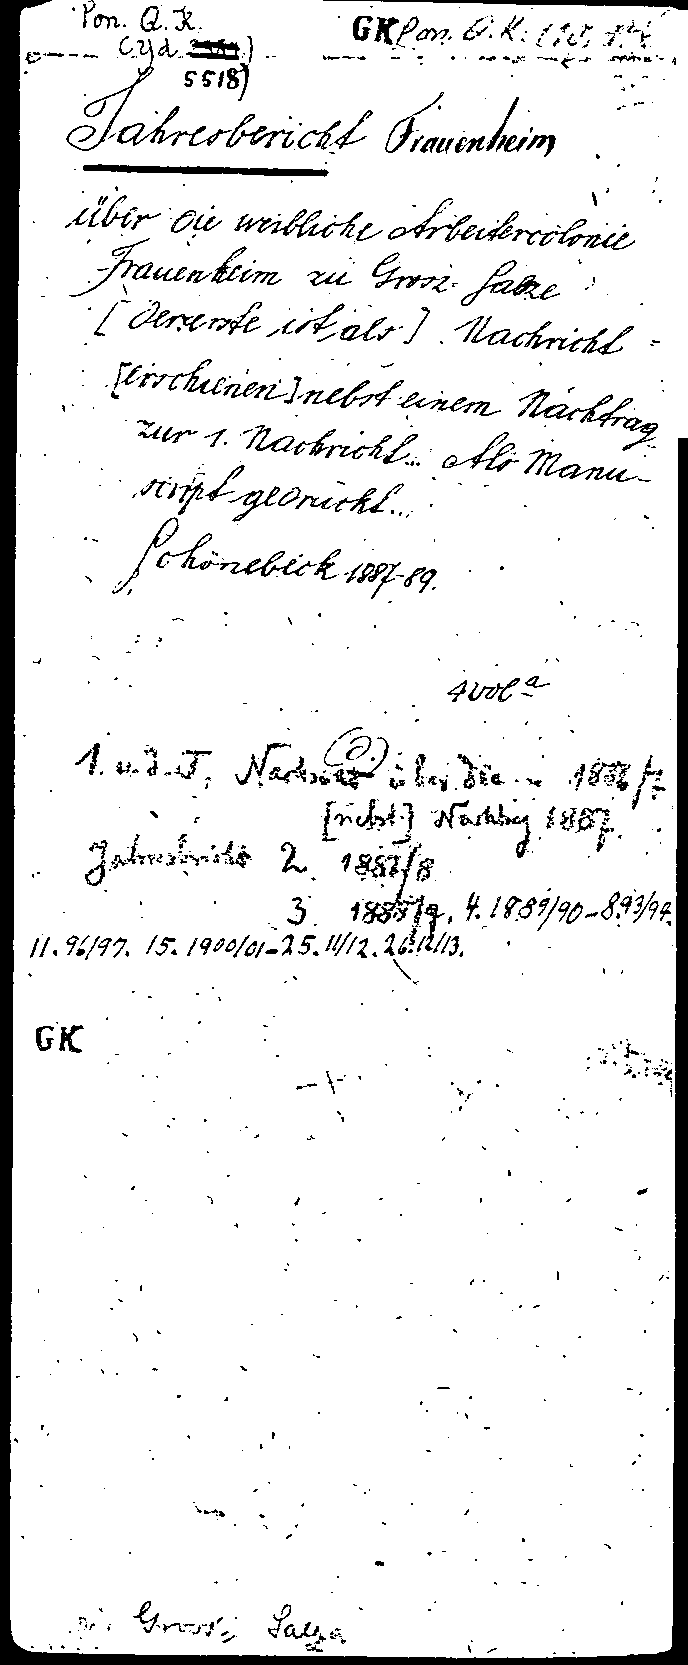 Pon. Q. K. GK Pon. Q. K.
(Zyd
5518)
Jahresbericht Frauenheim
über die weibliche Arbeitercolonie
Frauenheim zu Gross-Salze
[Dererste ist als] Nachricht
[erschienen] nebst einem Nachtrag
zur 1. Nachricht... Als Manu-
script gedruckt...
Schönebeck 1887-89.
4 vol a
1. u. d. T. Nachricht über die 1886/7
[nebst] Nachtrag 1887.
Jahresbericht 2 1887/8
3 1888/9, 4. 1889/90-8.93/94.
11.96/97. 15. 1900/01-25. 11/12. 26. 12/13.
GK
Gross- Salza